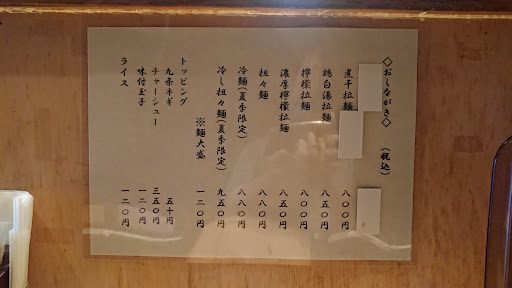 ◇おしながき◇ (税込)
煮干拉麺 八〇〇円
鶏白湯拉麺 八五〇円
檸檬拉麺 八〇〇円
濃厚檸檬拉麺 八五〇円
担々麺 八八〇円
冷麺(夏季限定) 八八〇円
冷し担々麺(夏季限定) 九五〇円
※麺大盛 一二〇円
トッピング
九条ネギ 五十円
チャーシュー 三五〇円
味付玉子 一二〇円
ライス 一二〇円